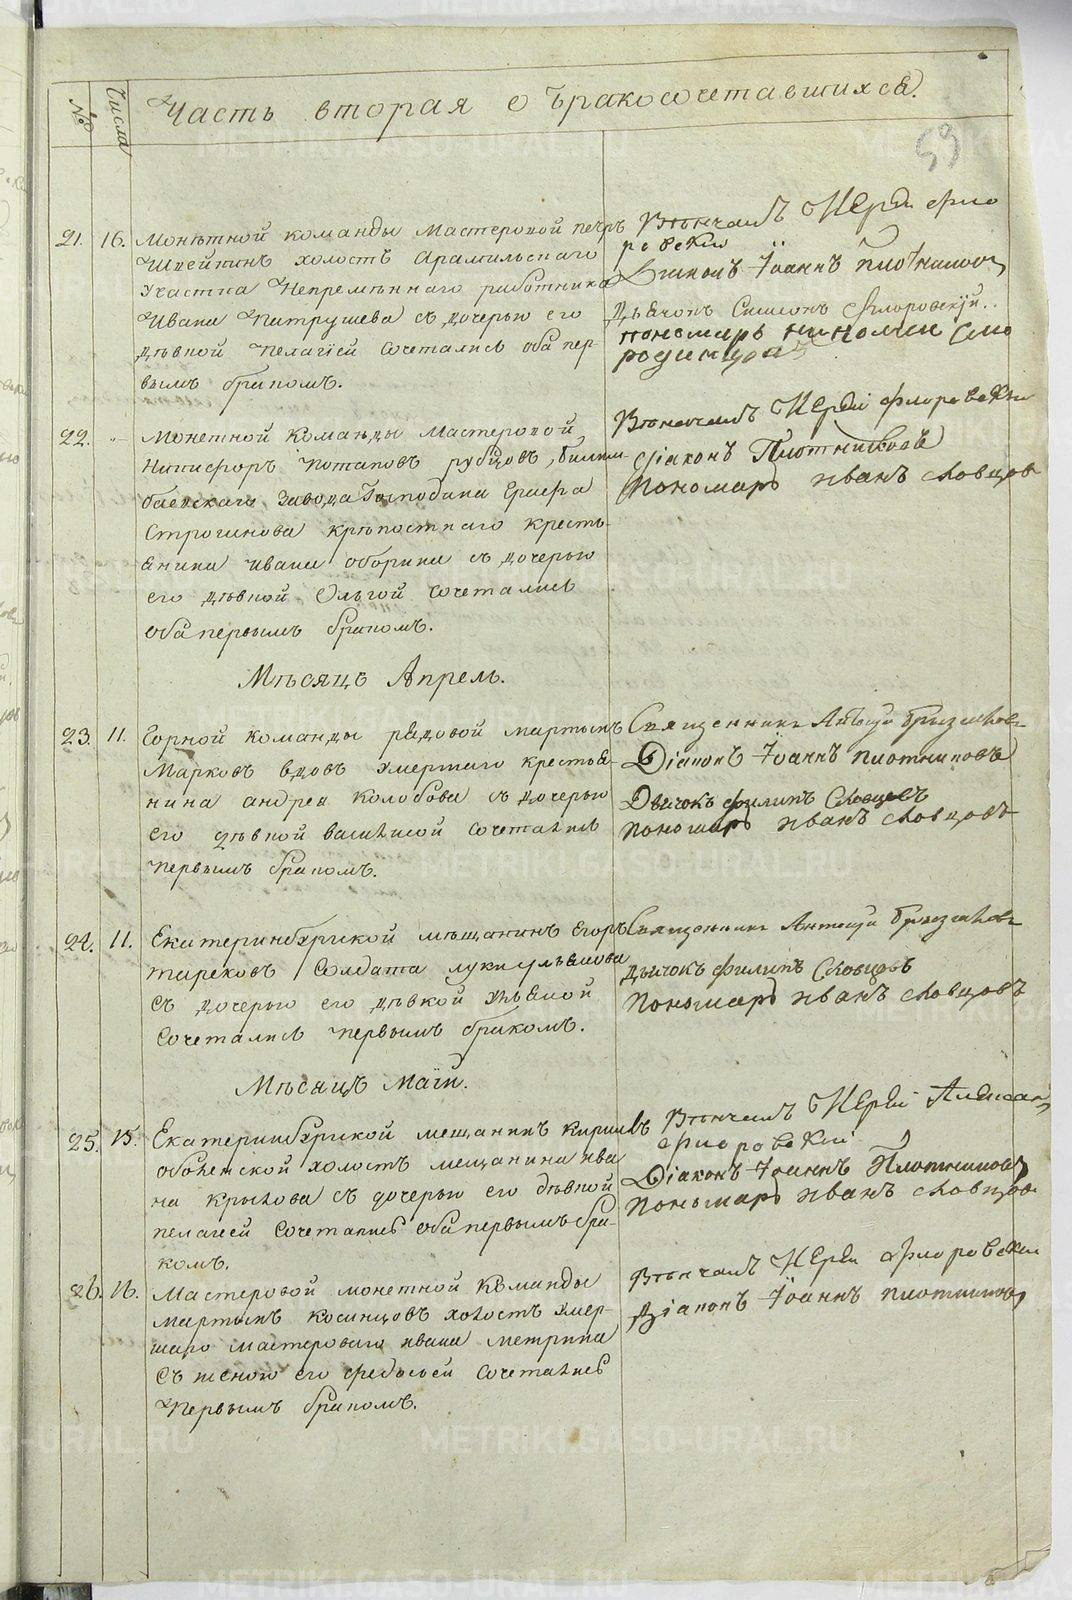 №
Числа
Часть вторая о бракосочетавшихся.
59
21. 16. Монѣтной команды мастеровой петръ
Швейкинъ холостъ Арамильскаго
Участка Непремѣннаго работника
Ивана Патрушева съ дочерью его
дѣвкой Пелагіей сочетались оба пер-
вымъ бракомъ.
Вѣнчалъ Іерей Фло
ровскій
Діаконъ Іоаннъ Плотниковъ
Дьячокъ Симеонъ Флоровскій..
пономарь николай Смо
родинцовъ
22. " Монетной команды мастеровой
Никифоръ Потаповъ рубцовъ, билим-
баевскаго завода Господина Графа
Строганова крѣпостнаго кресть-
янина ивана оборина съ дочерью
его дѣвкой Ольгой сочетались
оба первымъ бракомъ.
Вѣнчалъ Іерей Флоровскій
діаконъ Плотниковъ
Пономарь иванъ словцовъ
Мѣсяцъ Апрель.
23. 11. Горной команды рядовой мартынъ
Марковъ вдовъ умершаго крестья-
нина андрея колобова съ дочерью
его дѣвкой василисой сочетались
первымъ бракомъ.
Священникъ
Діаконъ Іоаннъ плотниковъ
Дьячокъ филипъ Словцовъ
пономарь иванъ словцовъ
24. 11. Екатеринбургской мѣщанинъ Егоръ
Тереховъ Солдата луки ульянова
съ дочерью его дѣвкой ульяной
сочетались первымъ бракомъ.
Священникъ
дьячокъ филипъ Словцовъ
пономарь иванъ словцовъ
Мѣсяцъ Маій.
25. 15. Екатеринбургской мещанинъ кирилъ
оболенской холостъ мещанина ива
на крылова съ дочерью его дѣвкой
пелагеей сочетались оба первымъ бра-
комъ.
Вѣнчалъ Іерей Алексан
флоровскій
Діаконъ Іоаннъ Плотниковъ
Пономарь иванъ словцовъ
26. 16. Мастеровой монетной команды
мартынъ косинцовъ холостъ умер-
шаго мастероваго ивана метрина
съ женою его федосьей сочетались
первымъ бракомъ.
Вѣнчалъ Іерей Флоровскій
Діаконъ Іоаннъ плотниковъ
METRIKI.GASO-URAL.RU